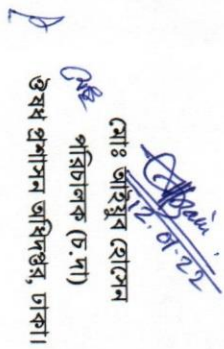 12.01.22
মোঃ আইয়ুব হোসেন
পরিচালক (চ.দা)
ঔষধ প্রশাসন অধিদপ্তর, ঢাকা।